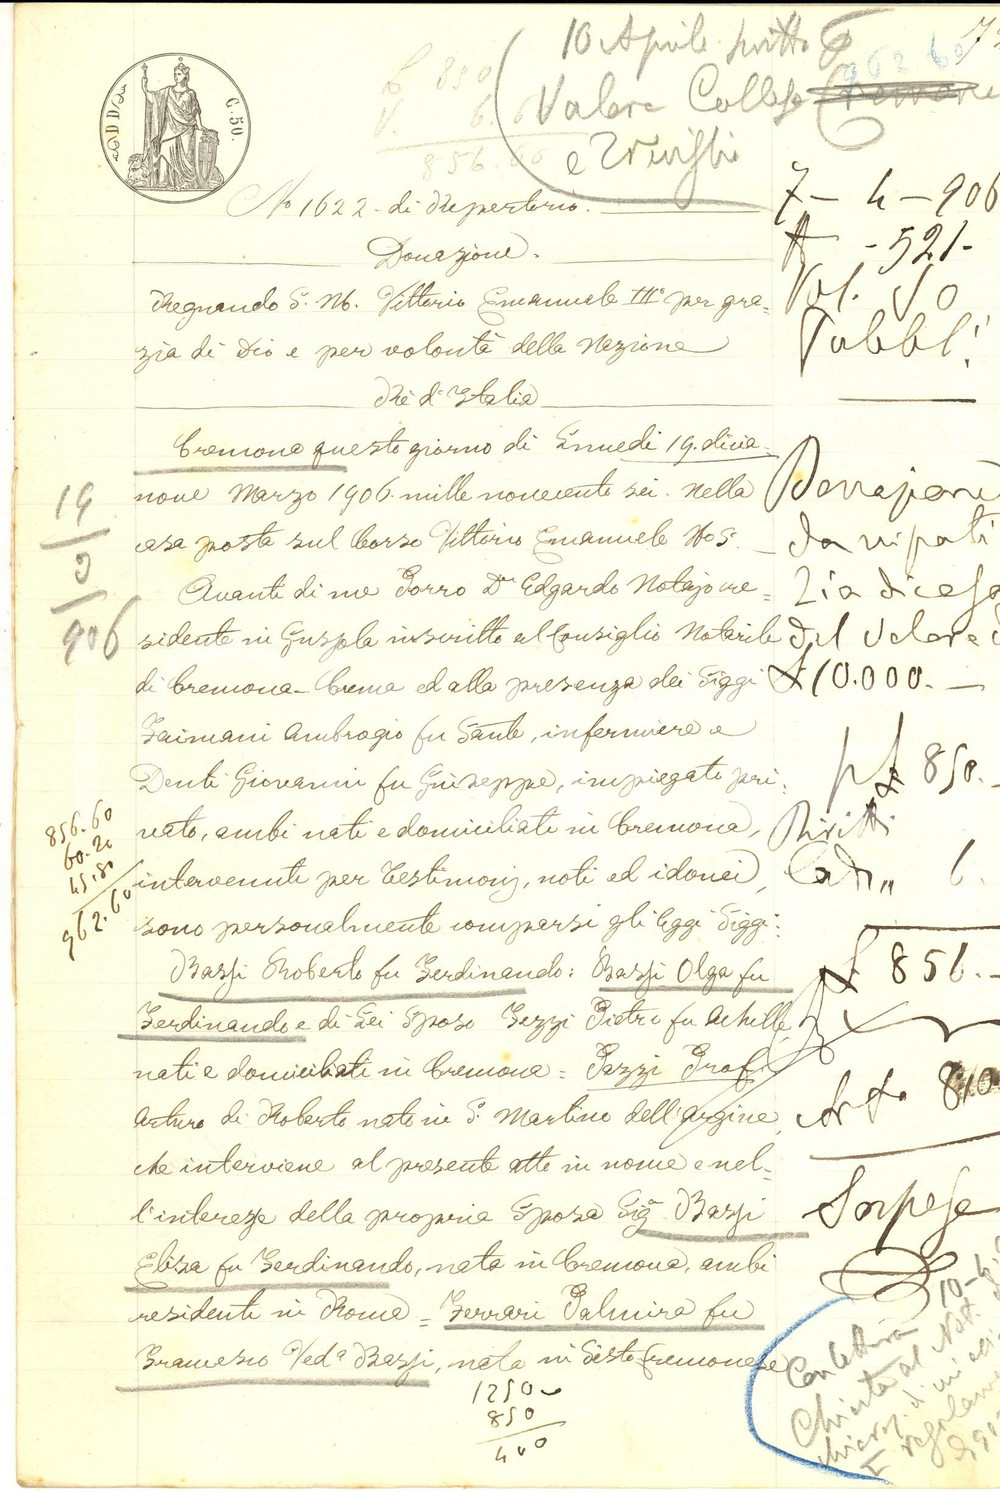 10 Aprile scritto
Valore Collese
e Treviglio
962 60
£ 850
V. 6.60
856.60
C. 50.
No 1622 - di Repertorio.
Donazione.
Regnando S. M. Vittorio Emanuele III° per gra=
zia di Dio e per volontà della Nazione
Re d'Italia
Cremona questo giorno di Lunedi 19. dicia=
nove Marzo 1906. mille novecento sei. nella
casa posta sul Corso Vittorio Emanuele No 5. _
Avanti di me Porro Dr Edgardo Notajo re=
sidente in Gussola inscritto al Consiglio Notarile
di Cremona - Crema ed alla presenza dei Siggi
Faimani Ambrogio fu Sante, infermiere e
Denti Giovanni fu Giuseppe, impiegato pri=
vato, ambi nati e domiciliati in Cremona,
intervenuti per Testimonj, noti ed idonei,
sono personalmente comparsi gli Eggi Siggi:
Bassi Roberto fu Ferdinando: Bassi Olga fu
Ferdinando e di Lei Sposo Gezzi Pietro fu Achille,
nati e domiciliati in Cremona = Pazzi Prof.
Arturo di Roberto nato in S. Martino dell'Argine
che interviene al presente atto in nome e nel=
l'interesse della propria Sposa Sigª Bassi
Elisa fu Ferdinando, nata in Cremona, ambi
residenti in Roma = Ferrari Palmira fu
Francesco Vedª Bassi, nata in Sesto Cremonese
1250
850
400
19
3
906
856.60
60.20
45.80
962.60
7 - 4 - 906
N - 521 -
Vol. 50
Pubbl!
Donazione
da nipoti
Zia di cosa
del valore
£ 10.000. -
p £ 850. -
Diritti
Cat. 6.
£ 856. -
Art 810
Sospesa
10-4
Con lettera
chiesta al Not.